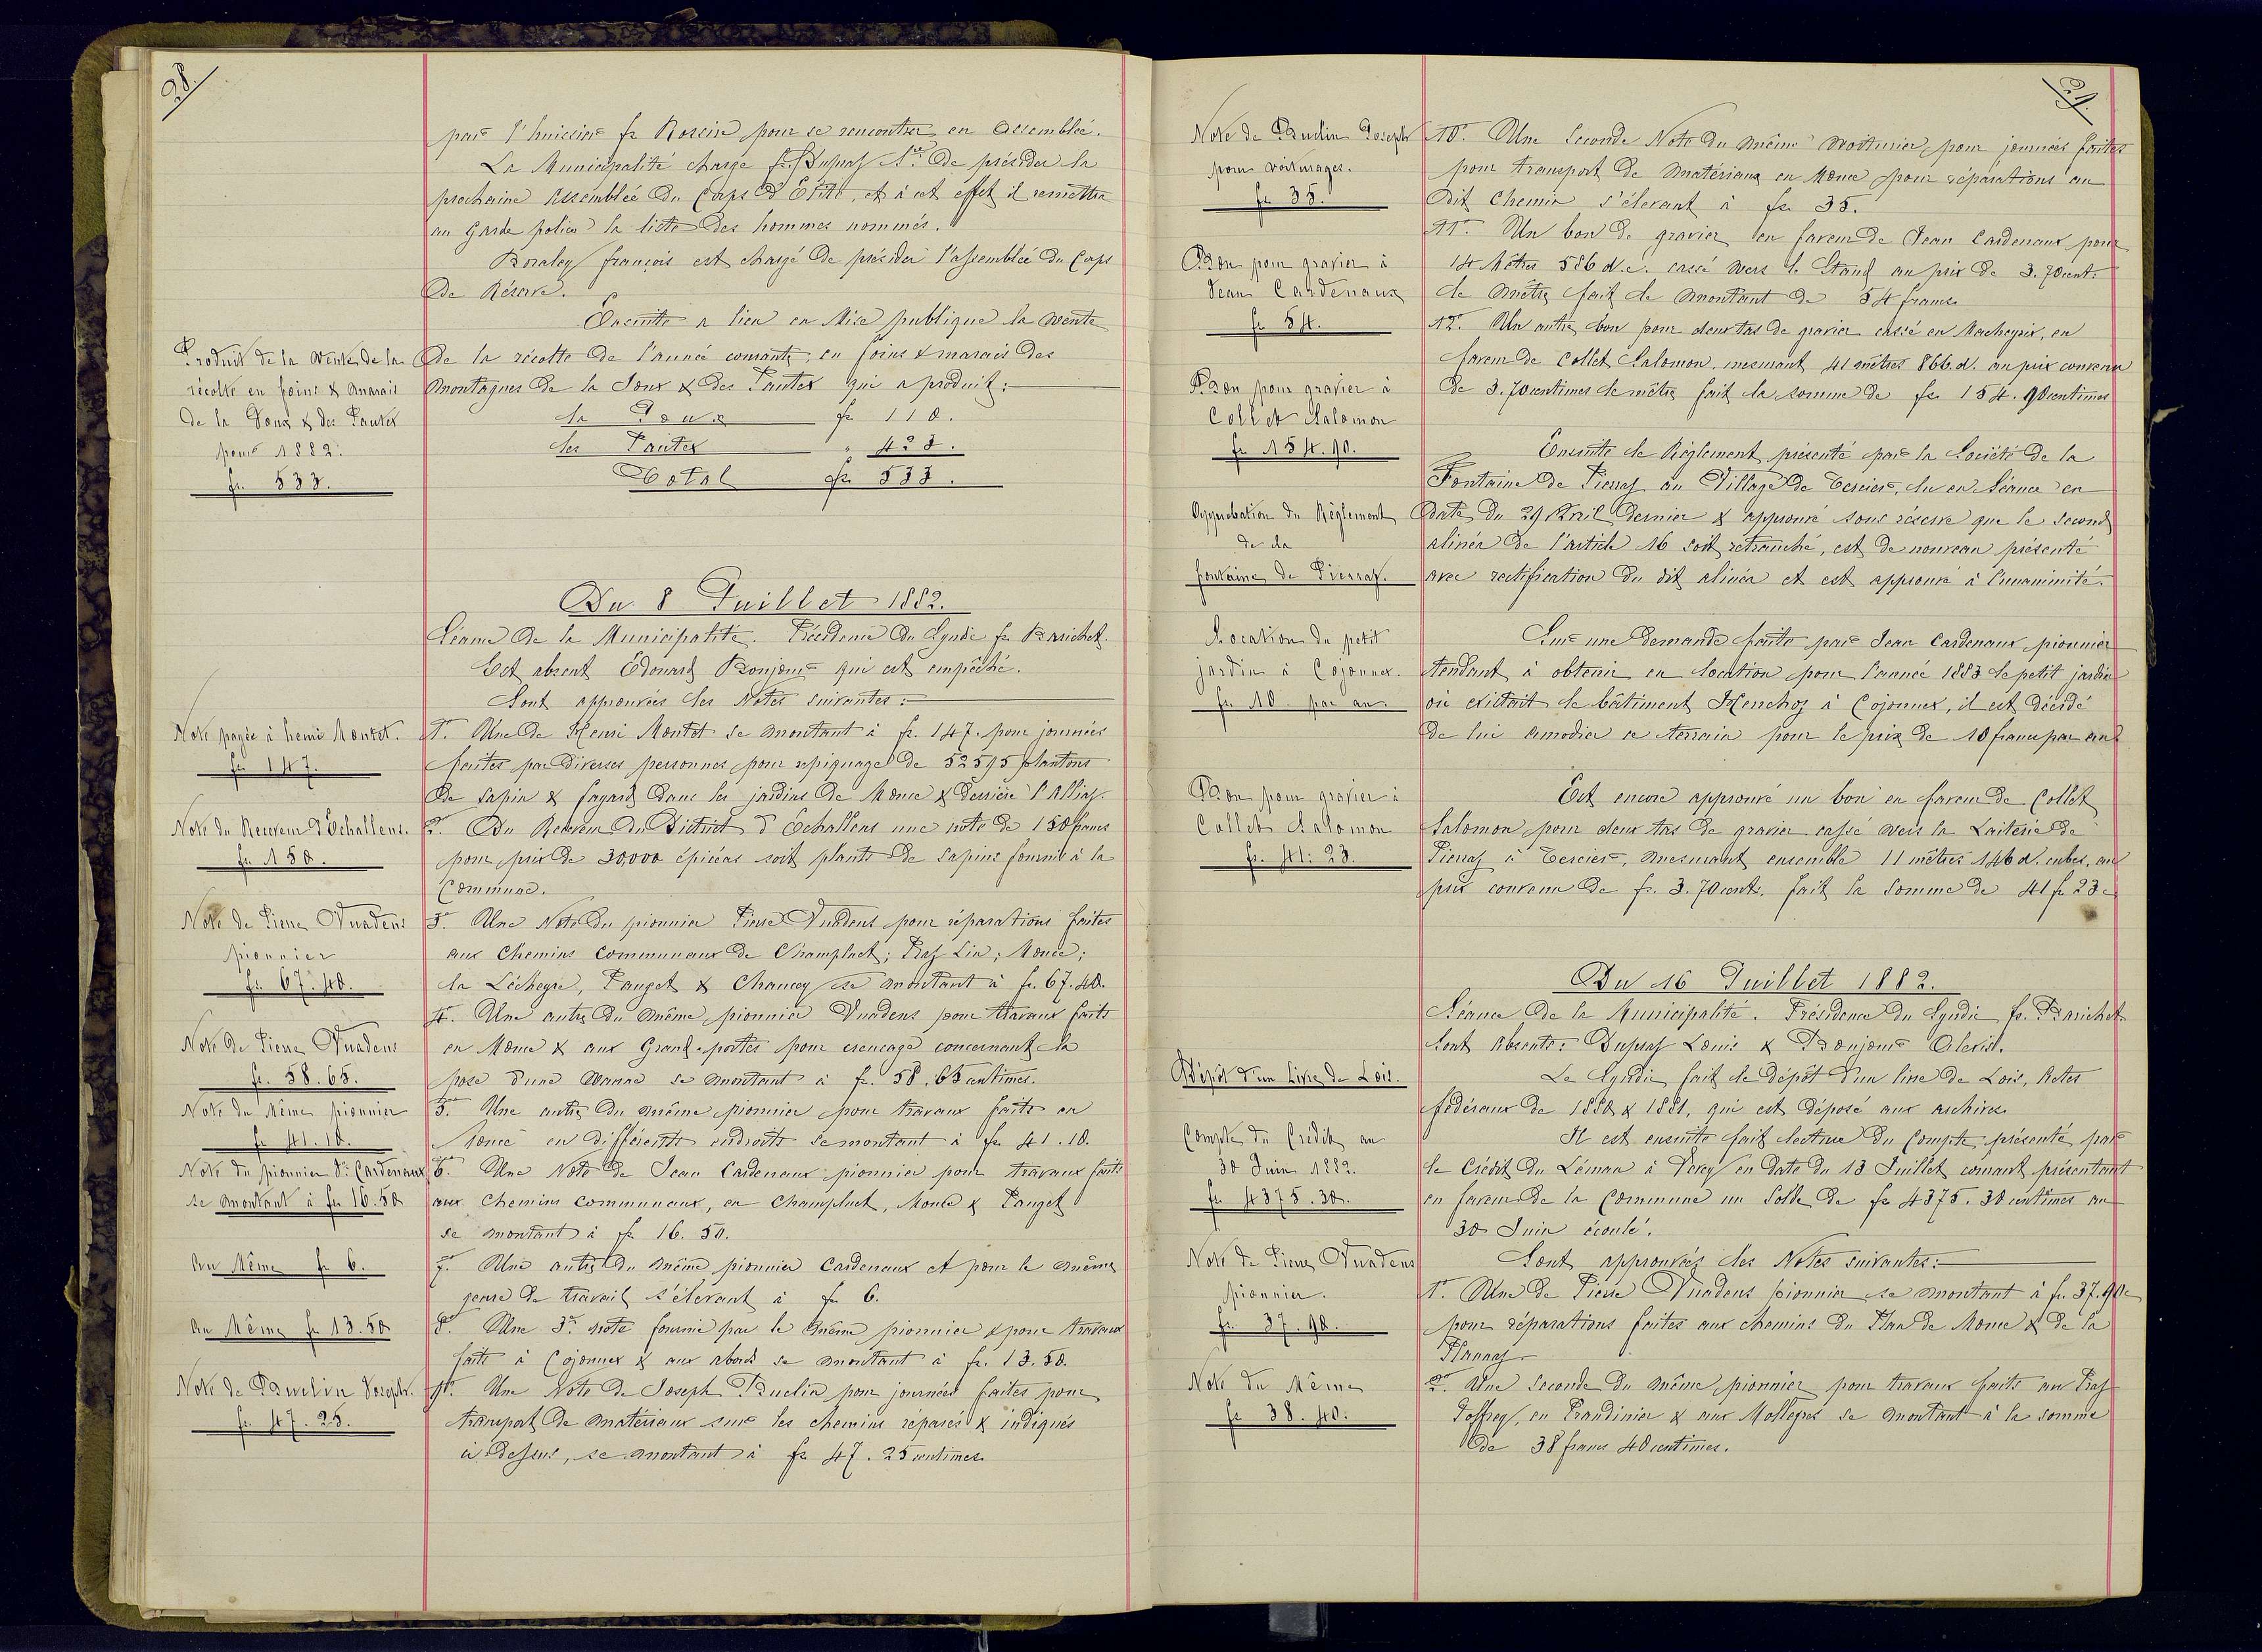 28.
par l'huissier fs Rossire pour se rencontrer en Assemblée.
La Municipalité charge fs. Dupraz 1er de présider la
prochaine Assemblée du Corps d'Élite, et à cet effet il remettra
au garde police la liste des hommes nommés.
Boraley françois est chargé de présider l'assemblée du Corps
de Réserve.
Ensuite a lieu en Mise publique la vente
Produit de la vente de la
récolte en foins & marais
de la Joux & des Pautex
pour 1882.
fr. 533.
de la récolte de l'année courante, en foins & marais des
montagnes de la Joux & des Pautex qui a produit:
la Joux fr 110.
les Pautex " 423.
Total fr 533.
Du 8 Juillet 1882.
Séance de la Municipalité. Présidence du Syndic fs Barichet.
Est absent Édouard Bonjour qui est empêché.
Sont approuvées les Notes suivantes:
Note payée à henri Montet.
fr 147.
1º. Une de Henri Montet se montant à fr. 147. pour journées
faites par diverses personnes pour repiquage de 52595 plantons
de sapin & fayard dans les jardins de Monce & derrière l'Alliaz.
Note du Receveur d'Echallens.
fr 150.
2º. Du Receveur du District d'Echallens une note de 150 francs
pour prix de 30000 épicéas soit plants de sapins fournis à la
Commune.
Note de Pierre Vuadens
pionnier
fr. 67.40.
3º. Une Note du pionnier Pierre Vuadens pour réparations faites
aux Chemins Communaux de Champluet; Praz Lin; Monce;
la Lécheyre, Pauget & Chaucey se montant à fr. 67.40.
Note de Pierre Vuadens
fr. 58.65.
4º. Une autre du même pionnier Vuadens pour travaux faits
en Monce & aux Grand-portes pour creusage concernant la
pose d'une vanne se montant à fr. 58.65 centimes.
Note du même pionnier
fr 41.10.
5º. Une autre du même pionnier pour travaux faits en
Monce en différents endroits se montant à fr 41.10.
Note du pionnier Jn Cardenaux
se montant à fr 16.50
6º. Une Note de Jean Cardenaux pionnier pour travaux faits
aux chemins communaux, en Champluet, Monce & Pauget
se montant à fr 16.50.
Au Même fr 6.
7º. Une autre du même pionnier Cardenaux et pour le même
genre de travail s'élevant à fr 6.
Au Même fr 13.50
8º. Une 3e. note fournie par le même pionnier & pour travaux
faits à Cojonnex & aux abords se montant à fr. 13.50.
Note de Buclin Joseph.
fr. 47.25.
9º. Une Note de Joseph Buclin pour journées faites pour
transport de matériaux sur les chemins réparés & indiqués
ci-dessus, se montant à fr 47.25 centimes.
29.
Note de Buclin Joseph
pour voiturages.
fr 35.
10º. Une Seconde Note du même voiturier pour journées faites
pour transport de matériaux en Monce pour réparations au
dit Chemin s'élevant à fr 35.
Bon pour gravier à
Jean Cardenaux
fr 54.
11º. Un bon de gravier en faveur de Jean Cardenaux pour
14 Mètres 586 d.c. cassé vers le Stand au prix de 3.70 cent.
le mètre fait le montant de 54 francs.
Bon pour gravier à
Collet Salomon
fr 154.90.
12º. Un autre bon pour deux tas de gravier cassé en Macheyrix, en
faveur de Collet Salomon, mesurant 41 mètres 866 d. au prix convenu
de 3.70 centimes le mètre fait la somme de fr 154.90 centimes
Ensuite le Règlement présenté par la Société de la
Approbation du Règlement
de la
fontaine de Pierraz.
Fontaine de Pierraz au Village de Tercier, lu en Séance en
date du 29 Avril dernier & approuvé sous réserve que le second
alinéa de l'article 16 soit retranché, est de nouveau présenté
avec rectification du dit alinéa et est approuvé à l'unanimité.
Location du petit
jardin à Cojonnex.
fr 10. par an.
Sur une demande faite par Jean Cardenaux pionnier
tendant à obtenir en location pour l'année 1883 le petit jardin
où existait le bâtiment Henchoz à Cojonnex, il est décidé
de lui amodier ce terrain pour le prix de 10 francs par an.
Bon pour gravier à
Collet Salomon
fr. 41:23.
Est encore approuvé un bon en faveur de Collet
Salomon pour deux tas de gravier cassé vers la Laiterie de
Pierraz à Tercier, mesurant ensemble 11 mètres 146 d. cubes, au
prix convenu de fr. 3.70 cent. fait la somme de 41 fr 23 c
Du 16 Juillet 1882.
Séance de la Municipalité. Présidence du Syndic fs. Barichet
Sont Absents: Dupraz Louis & Bonjour Alexis.
Dépôt d'un Livre de Lois.
Le Syndic fait le dépôt d'un livre de Lois, Actes
fédéraux de 1880 & 1881, qui est déposé aux archives.
Compte du Crédit au
30 Juin 1882.
fr 4375.30.
Il est ensuite fait lecture du Compte présenté par
le Crédit du Léman à Vevey en date du 13 Juillet courant, présentant
en faveur de la Commune un Solde de fr 4375.30 centimes au
30 Juin écoulé.
Sont approuvées les Notes suivantes:
Note de Pierre Vuadens
pionnier.
fr. 37.90.
1º. Une de Pierre Vuadens pionnier se montant à fr. 37.90 c
pour réparations faites aux chemins du Plan de Monce & de la
Plannaz
Note du Même
fr 38.40.
2º. Une Seconde du même pionnier pour travaux faits au Praz
Joffrey, en Prandinier & aux Mollegres se montant à la somme
de 38 francs 40 centimes.